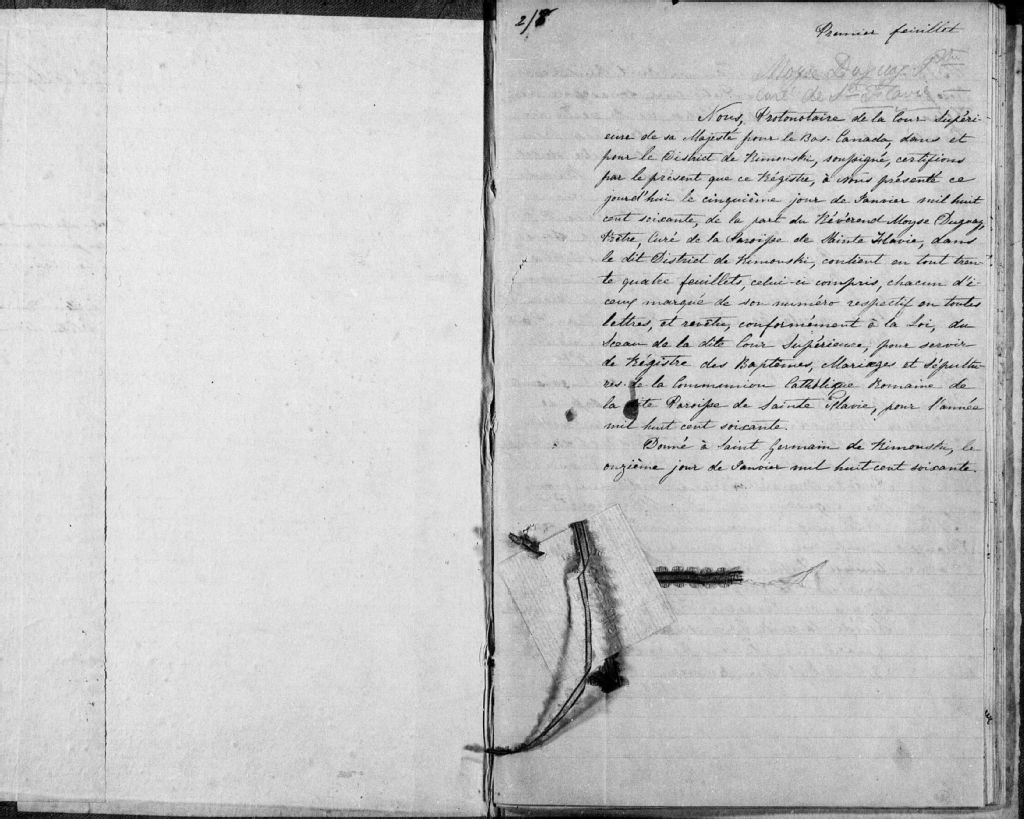 2/8
Premier feuillet
Moyse Duguay Ptre
Curé de Ste Flavie
Nous, Protonotaire de la Cour Supéri-
eure de sa Majesté pour le Bas-Canada, dans et
pour le District de Kimouski, soussigné, certifions
par le présent que ce Régistre, à nous présenté ce
jourd'hui le cinquième jour de Janvier mil huit
cent soixante, de la part du Révérend Moyse Duguay,
Prêtre, Curé de la Paroisse de Sainte Flavie, dans
le dit District de Kimouski, contient en tout tren-
te quatre feuillets, celui-ci compris, chacun d'i-
ceux marqué de son numéro respectif en toutes
lettres, et revêtu, conformément à la Loi, du
Sceau de la dite Cour Supérieure, pour servir
de Régistre des Baptêmes, Mariages et Sépultu-
res de la Communion Catholique Romaine de
la dite Paroisse de Sainte Flavie, pour l'année
mil huit cent soixante.
Donné à Saint Germain de Rimouski, le
onzième jour de Janvier mil huit cent soixante.